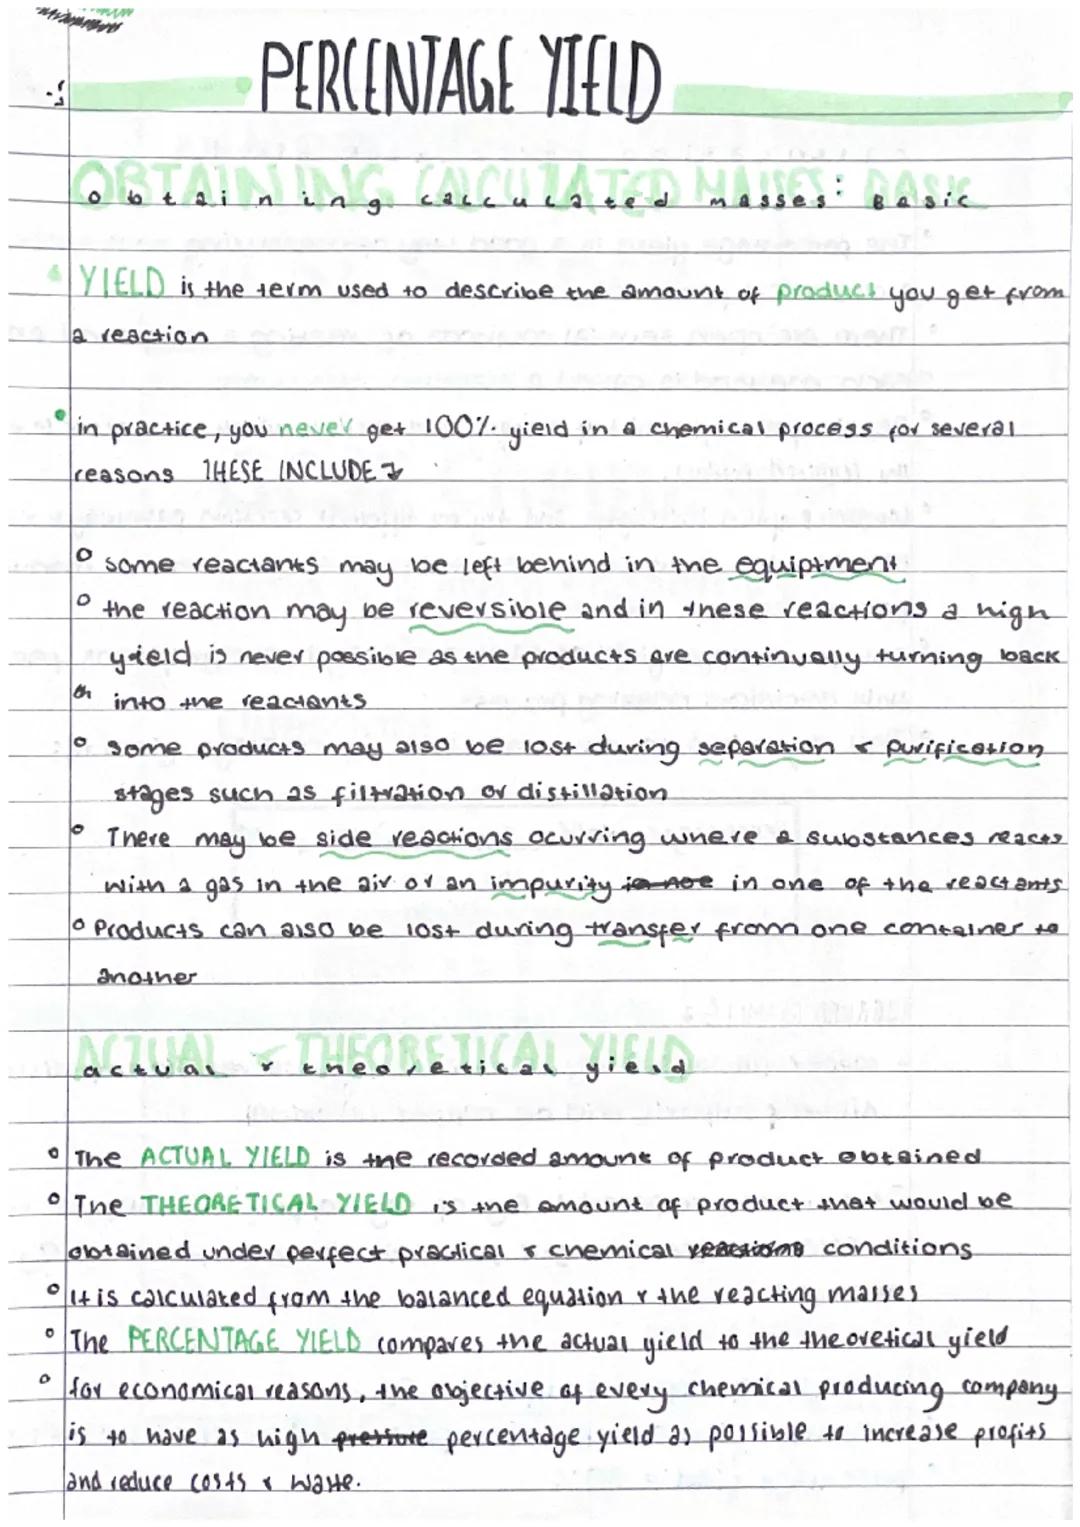 PERCENTAGE YIELD
OBTAINING CALCULATED MASSES: BASIC
obtaining calculated masses: Basic
YIELD is the term used to describe the amount of product you get from
a reaction
in practice, you never get 100% yield in a chemical process for several
reasons THESE INCLUDE ↓
some reactants may be left behind in the equiptment
the reaction may be reversible and in these reactions a high
yield is never possible as the products are continually turning back
into the reactants
some products may also be lost during separation & purification
stages such as filtration or distillation
There may be side reactions ocurring where a substances reacts
with a gas in the air or an impurity in one of the reactants
Products can also be lost during transfer from one container to
another
ACTUAL & THEORETICAL YIELD
actual & theoretical yield
The ACTUAL YIELD is the recorded amount of product obtained
The THEORETICAL YIELD is the amount of product that would be
obtained under perfect practical & chemical reactions conditions
It is calculated from the balanced equation & the reacting masses
The PERCENTAGE YIELD compares the actual yield to the theoretical yield
for economical reasons, the objective of every chemical producing company
is to have as high pressure percentage yield as possible to increase profits
and reduce costs & waste.